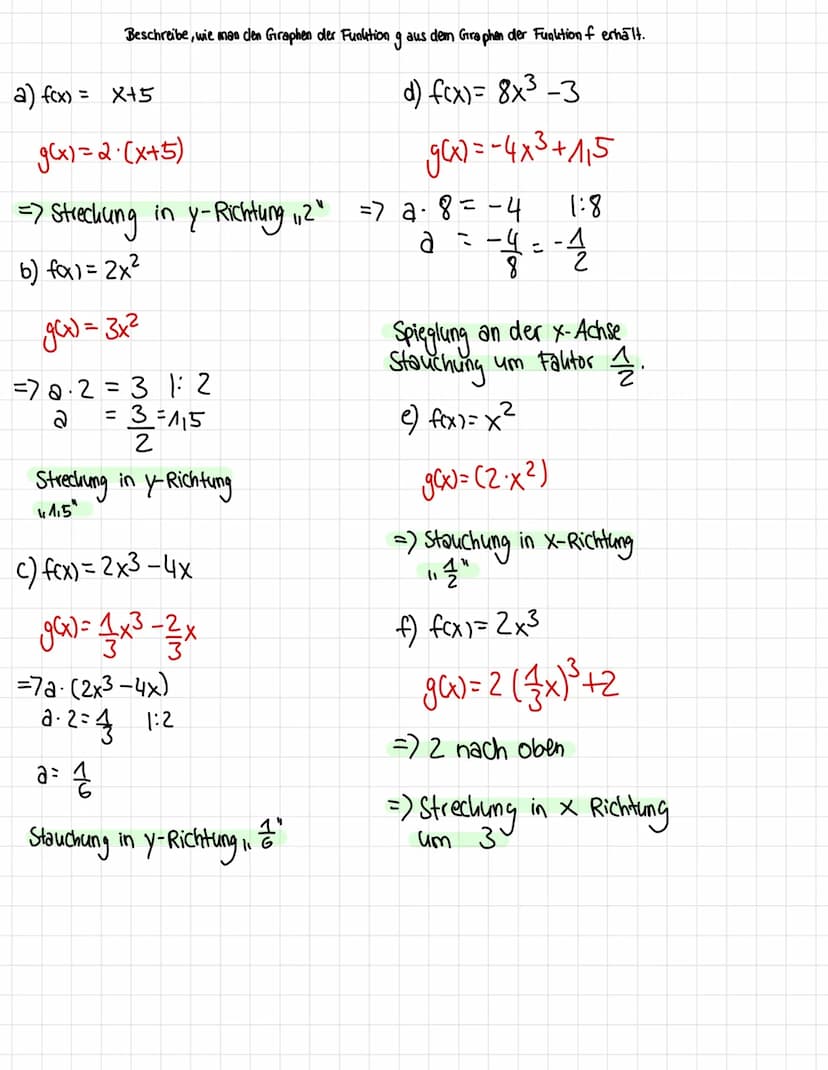 Beschreibe, wie man den Graphen der Funktion g aus dem Graphen der Funktion f erhält.
a) f(x) = x+5
g(x) = 2·(x+5)
=> Streckung in y-Richtung „2"
b) f(x) = 2x²
g(x) = 3x²
=> a·2 = 3 |: 2
a = 3/2 = 1,5
Streckung in y-Richtung
„1,5"
c) f(x) = 2x³ - 4x
g(x) = 1/3 x³ - 2/3 x
=> a·(2x³ - 4x)
a·2 = 1/3 |:2
a = 1/6
Stauchung in y-Richtung „1/6"
d) f(x) = 8x³ - 3
g(x) = -4x³ + 1,5
=> a·8 = -4 |:8
a = -4/8 = -1/2
Spieglung an der x-Achse
Stauchung um Faktor 1/2.
e) f(x) = x²
g(x) = (2·x²)
=> Stauchung in x-Richtung
„1/2"
f) f(x) = 2x³
g(x) = 2 (1/3 x)³ + 2
=> 2 nach oben
=> Streckung in x Richtung
um 3